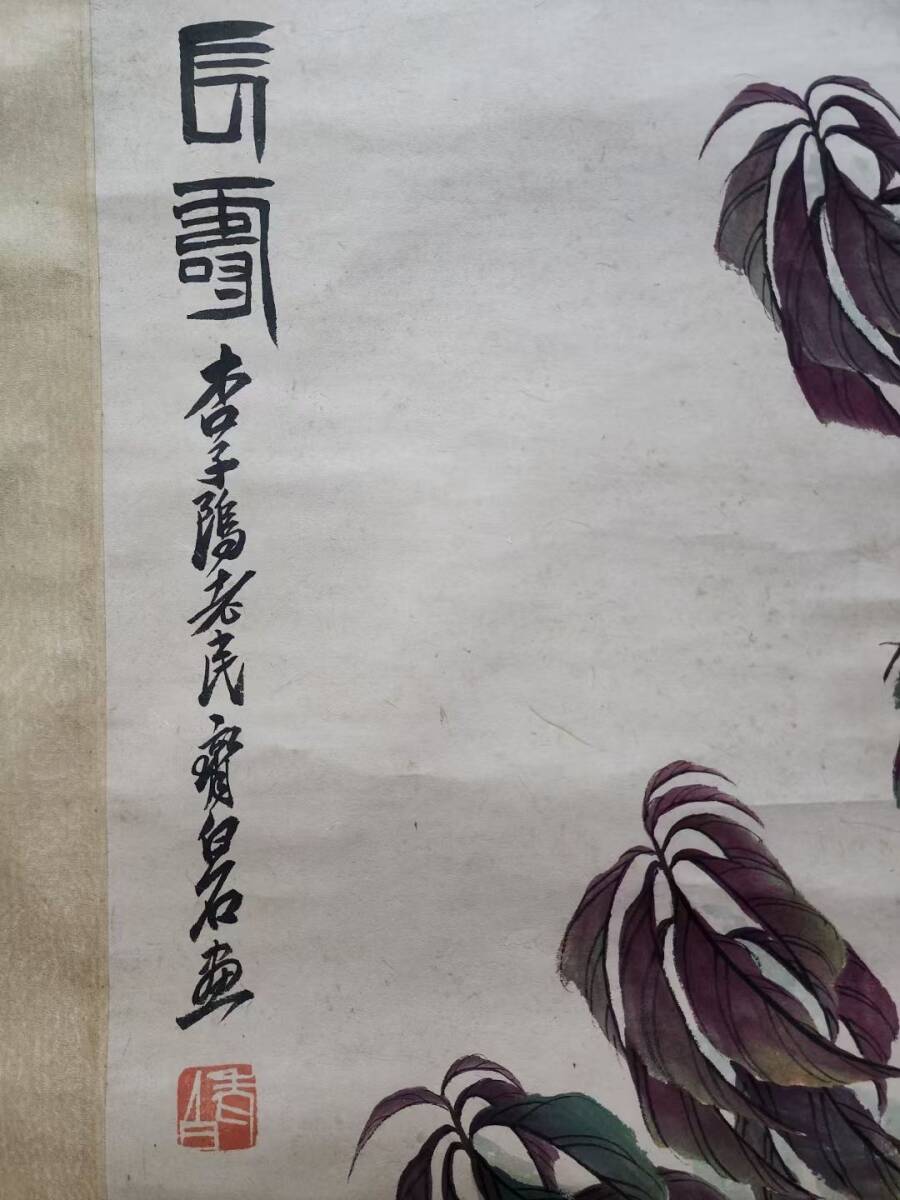 長壽
杏子隖老民齊白石畫